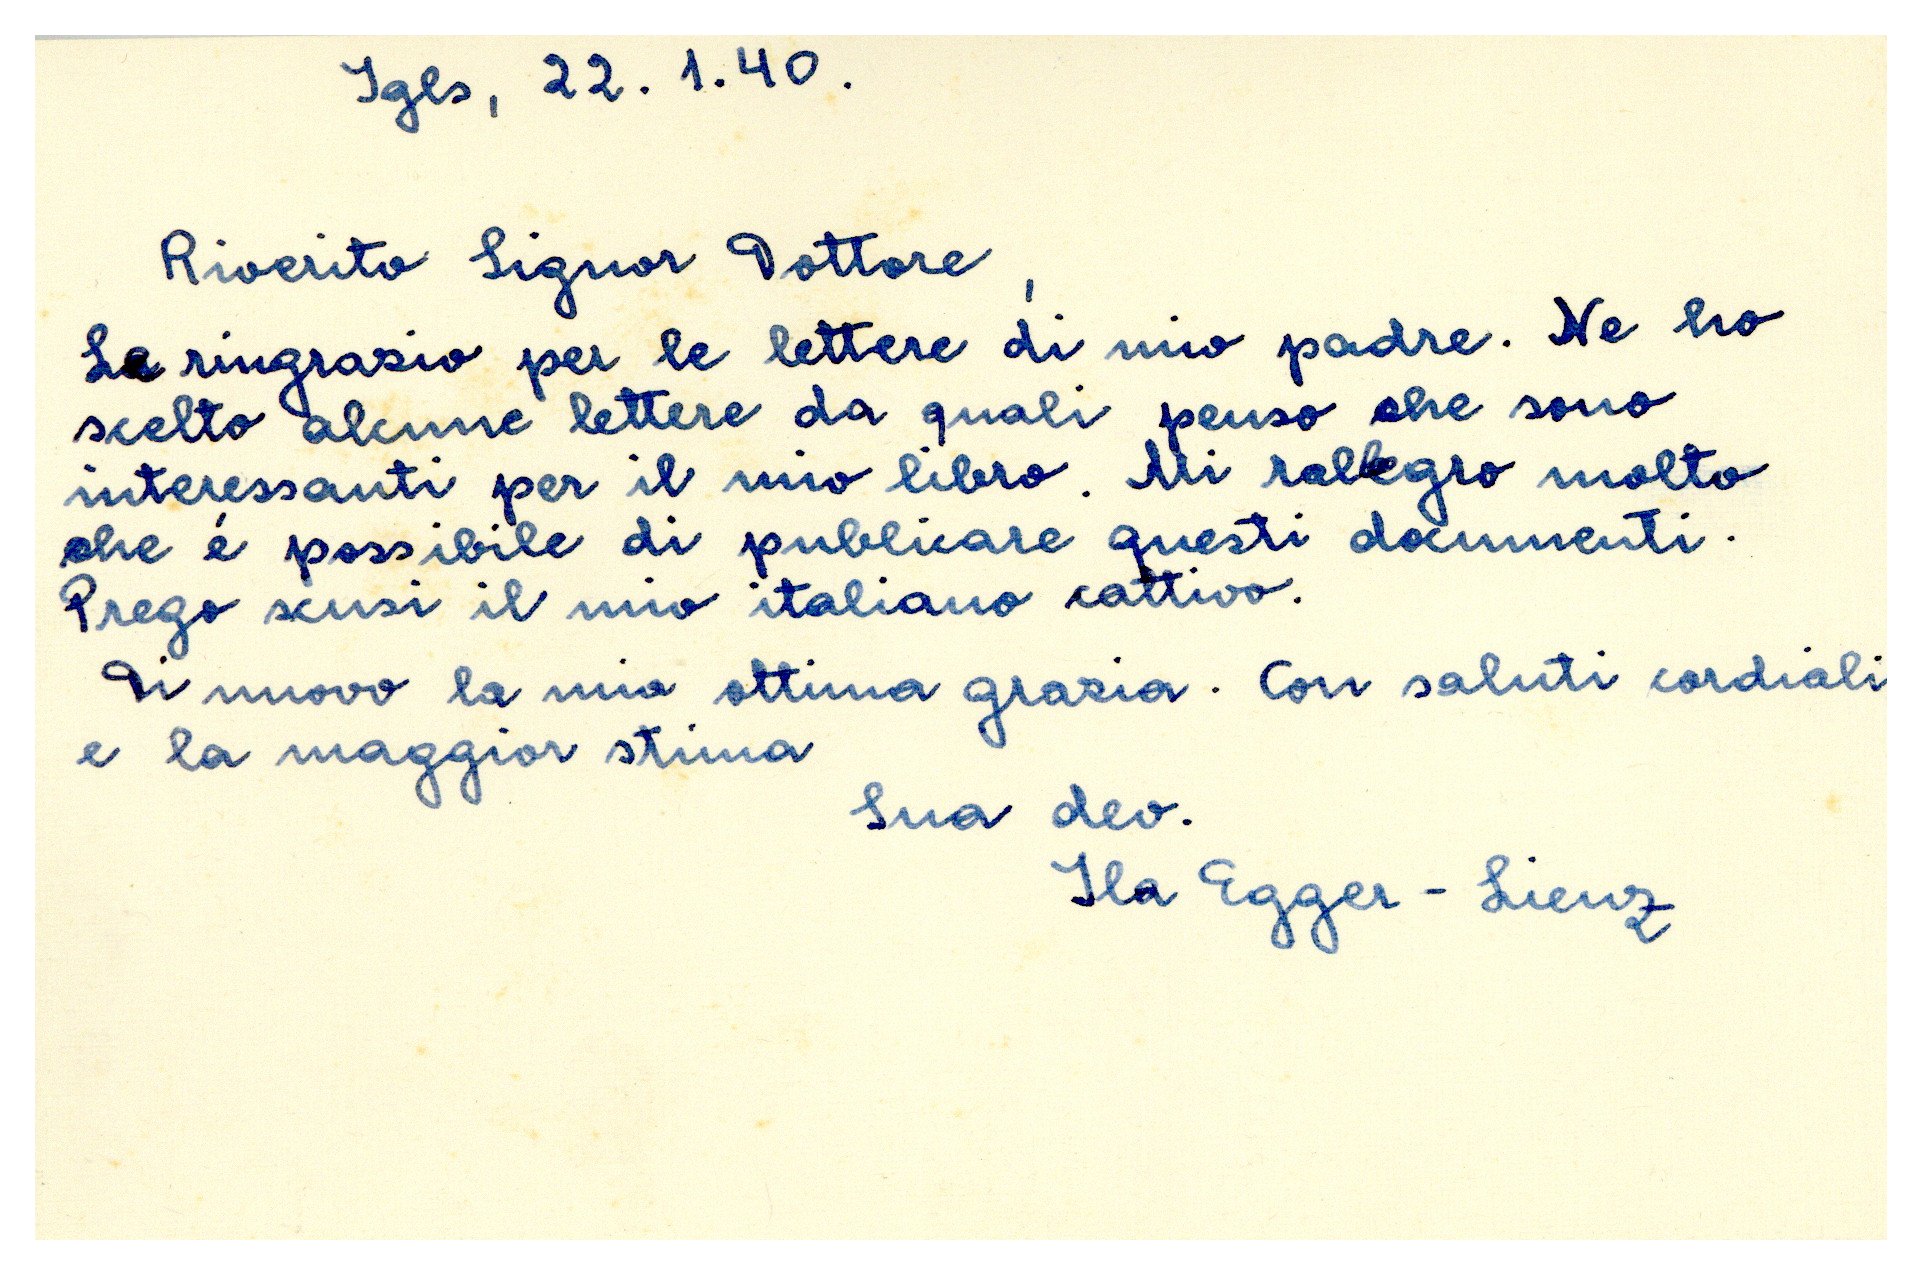 Igls, 22. 1. 40.
Riverito Signor Dottore,
La ringrazio per le lettere di mio padre. Ne ho
scelto alcune lettere da quali penso che sono
interessanti per il mio libro. Mi rallegro molto
che é possibile di publicare questi documenti.
Prego scusi il mio italiano cattivo.
Di nuovo la mia ottima grazia. Con saluti cordiali
e la maggior stima
Sua dev.
Ila Egger-Lienz